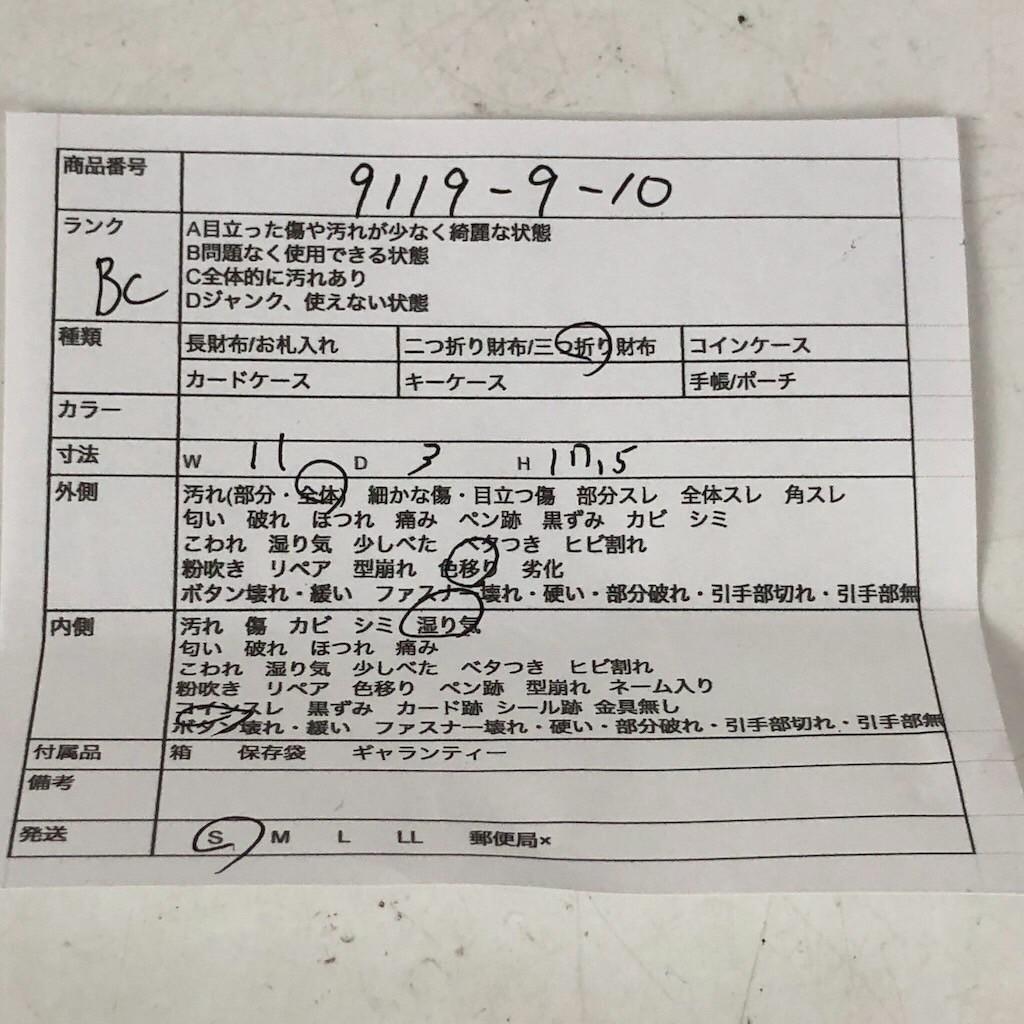 商品番号 9119-9-10
ランク BC
A目立った傷や汚れが少なく綺麗な状態
B問題なく使用できる状態
C全体的に汚れあり
Dジャンク、使えない状態
種類 長財布/お札入れ 二つ折り財布/三つ折り財布 コインケース
カードケース キーケース 手帳/ポーチ
カラー
寸法 W 11 D 3 H 17,5
外側 汚れ(部分・全体) 細かな傷・目立つ傷 部分スレ 全体スレ 角スレ
匂い 破れ ほつれ 痛み ペン跡 黒ずみ カビ シミ
こわれ 湿り気 少しべた ベタつき ヒビ割れ
粉吹き リペア 型崩れ 色移り 劣化
ボタン壊れ・緩い ファスナー壊れ・硬い・部分破れ・引手部切れ・引手部無
内側 汚れ 傷 カビ シミ 湿り気
匂い 破れ ほつれ 痛み
こわれ 湿り気 少しべた ベタつき ヒビ割れ
粉吹き リペア 色移り ペン跡 型崩れ ネーム入り
コインスレ 黒ずみ カード跡 シール跡 金具無し
ボタン壊れ・緩い ファスナー壊れ・硬い・部分破れ・引手部切れ・引手部無
付属品 箱 保存袋 ギャランティー
備考
発送 S M L LL 郵便局×